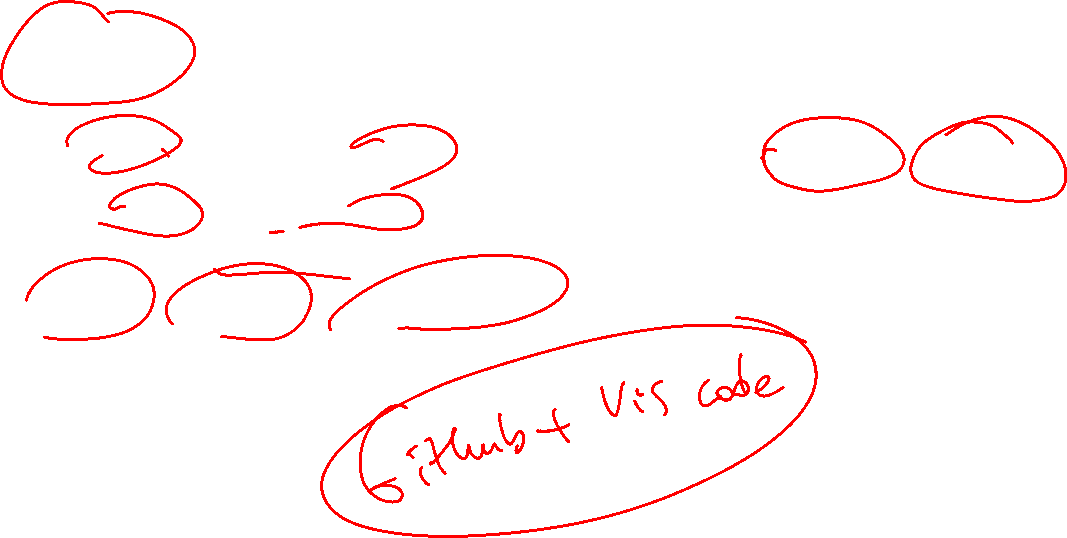 Github + Vis code